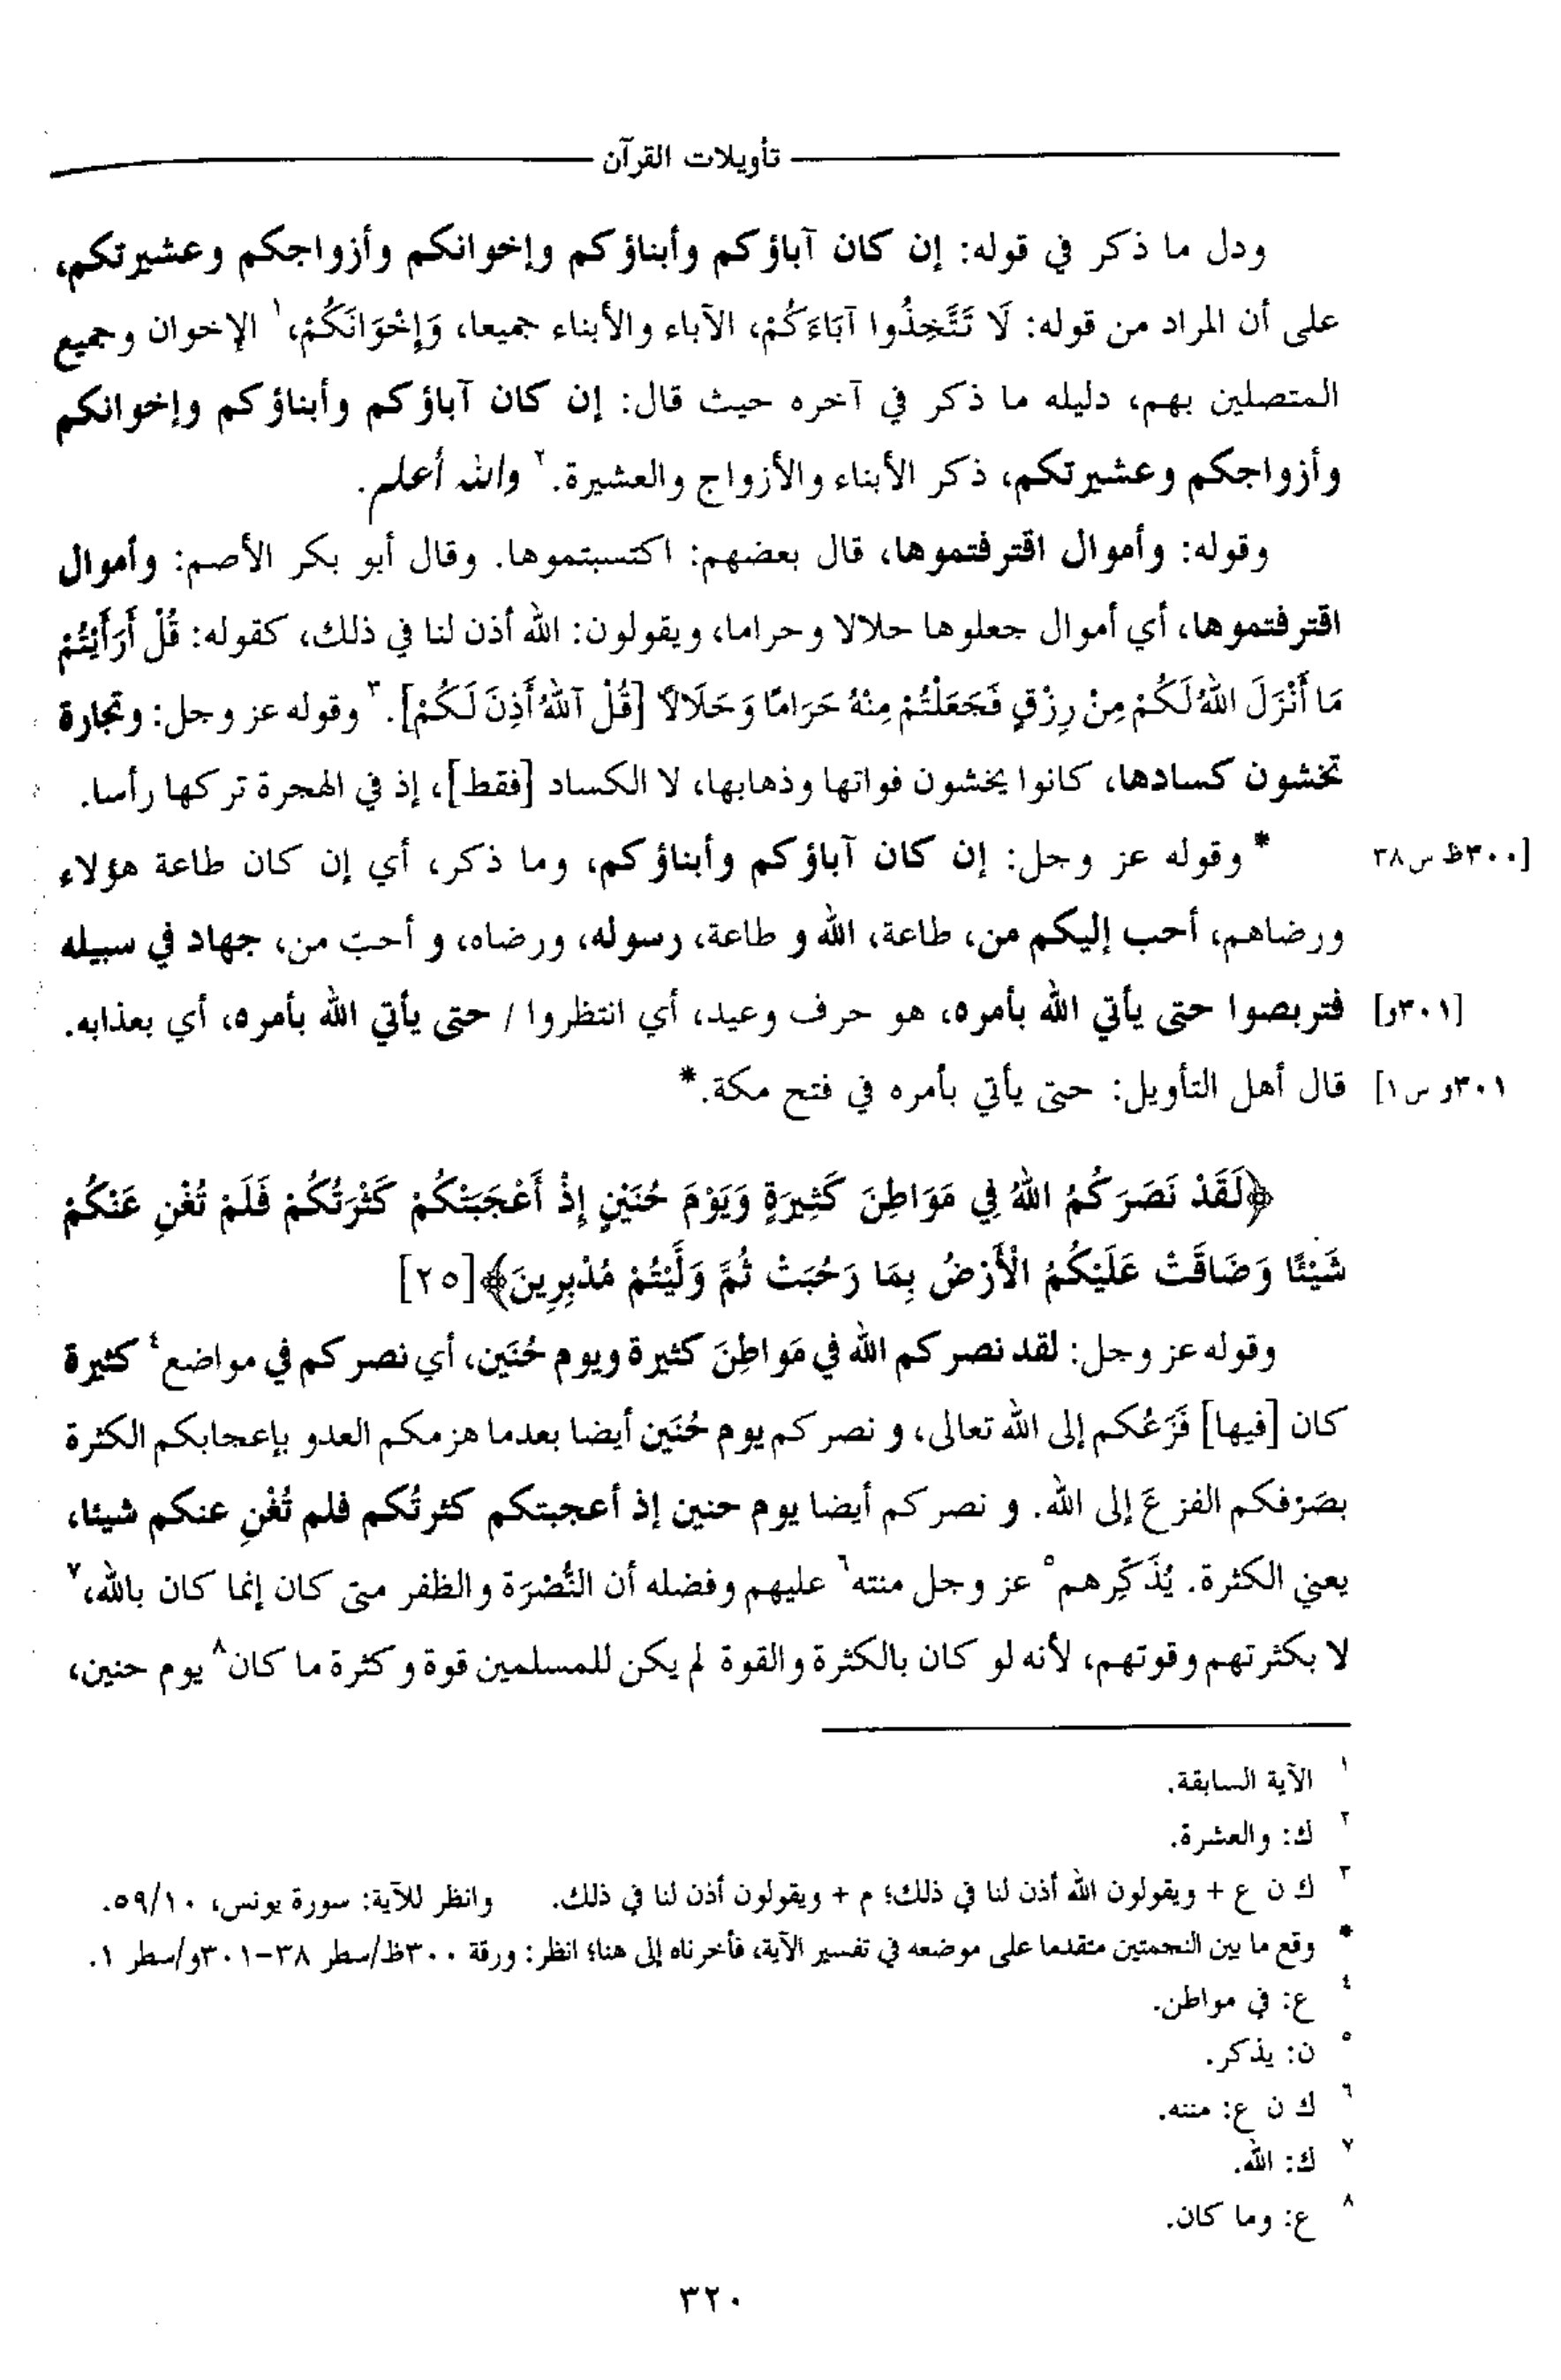 تأويلات القرآن
ودل ما ذكر في قوله: إن كان آباؤكم وأبناؤكم وإخوانكم وأزواجكم وعشيرتكم،
على أن المراد من قوله: لَا تَتَّخِذُوا آبَاءَكُمْ، الآباء والأبناء جميعا، وَإِخْوَانَكُمْ،١ الإخوان وجميع
المتصلين بهم، دليله ما ذكر في آخره حيث قال: إن كان آباؤكم وأبناؤكم وإخوانكم
وأزواجكم وعشيرتكم، ذكر الأبناء والأزواج والعشيرة.٢ والله أعلم.
وقوله: وأموال اقترفتموها، قال بعضهم: اكتسبتموها. وقال أبو بكر الأصم: وأموال
اقترفتموها، أي أموال جعلوها حلالا وحراما، ويقولون: الله أذن لنا في ذلك، كقوله: قُلْ أَرَأَيْتُمْ
مَا أَنْزَلَ اللهُ لَكُمْ مِنْ رِزْقٍ فَجَعَلْتُمْ مِنْهُ حَرَامًا وَحَلَالًا [قُلْ آللهُ أَذِنَ لَكُمْ].٣ وقوله عز وجل: وتجارة
تخشون كسادها، كانوا يخشون فواتها وذهابها، لا الكساد [فقط]، إذ في الهجرة تركها رأسا.
[٣٠٠ظ س٣٨ * وقوله عز وجل: إن كان آباؤكم وأبناؤكم، وما ذكر، أي إن كان طاعة هؤلاء
ورضاهم، أحب إليكم من، طاعة، الله و طاعة، رسوله، ورضاه، و أحبّ من، جهاد في سبيله
[٣٠١و] فتربصوا حتى يأتي الله بأمره، هو حرف وعيد، أي انتظروا / حتى يأتي الله بأمره، أي بعذابه.
٣٠١و س١] قال أهل التأويل: حتى يأتي بأمره في فتح مكة.*
﴿لَقَدْ نَصَرَكُمُ اللهُ فِي مَوَاطِنَ كَثِيرَةٍ وَيَوْمَ حُنَيْنٍ إِذْ أَعْجَبَتْكُمْ كَثْرَتُكُمْ فَلَمْ تُغْنِ عَنْكُمْ
شَيْئًا وَضَاقَتْ عَلَيْكُمُ الْأَرْضُ بِمَا رَحُبَتْ ثُمَّ وَلَّيْتُمْ مُدْبِرِينَ﴾[٢٥]
وقوله عز وجل: لقد نصركم الله في مَواطِنَ كثيرة ويوم حُنَين، أي نصركم في مواضع٤ كثيرة
كان [فيها] فَزَعُكم إلى الله تعالى، و نصركم يوم حُنَين أيضا بعدما هزمكم العدو بإعجابكم الكثرة
بصَرْفكم الفزعَ إلى الله. و نصركم أيضا يوم حنين إذ أعجبتكم كثرتُكم فلم تُغْنِ عنكم شيئا،
يعني الكثرة. يُذَكِّرهم٥ عز وجل منته٦ عليهم وفضله أن النُّصْرَة والظفر متى كان إنما كان بالله،٧
لا بكثرتهم وقوتهم، لأنه لو كان بالكثرة والقوة لم يكن للمسلمين قوة وكثرة ما كان٨ يوم حنين،
١ الآية السابقة.
٢ ك: والعشرة.
٣ ك ن ع + ويقولون الله أذن لنا في ذلك؛ م + ويقولون أذن لنا في ذلك. وانظر للآية: سورة يونس، ٥٩/١٠.
* وقع ما بين النجمتين متقدما على موضعه في تفسير الآية، فأخرناه إلى هنا؛ انظر: ورقة ٣٠٠ظ/سطر ٣٨-٣٠١و/سطر ١.
٤ ع: في مواطن.
٥ ن: يذكر.
٦ ك ن ع: مننه.
٧ ك: الله.
٨ ع: وما كان.
٣٢٠